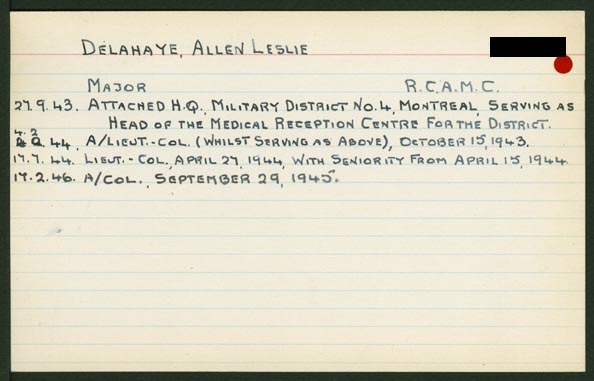 DELAHAYE, ALLEN LESLIE
MAJOR R.C.A.M.C.
27.9.43. ATTACHED H.Q., MILITARY DISTRICT No. 4, MONTREAL, SERVING AS
HEAD OF THE MEDICAL RECEPTION CENTRE FOR THE DISTRICT.
4.2.44. A/LIEUT.-COL. (WHILST SERVING AS ABOVE), OCTOBER 15, 1943.
17.7.44. LIEUT.-COL., APRIL 27, 1944, WITH SENIORITY FROM APRIL 15, 1944.
17.2.46. A/COL., SEPTEMBER 29, 1945.